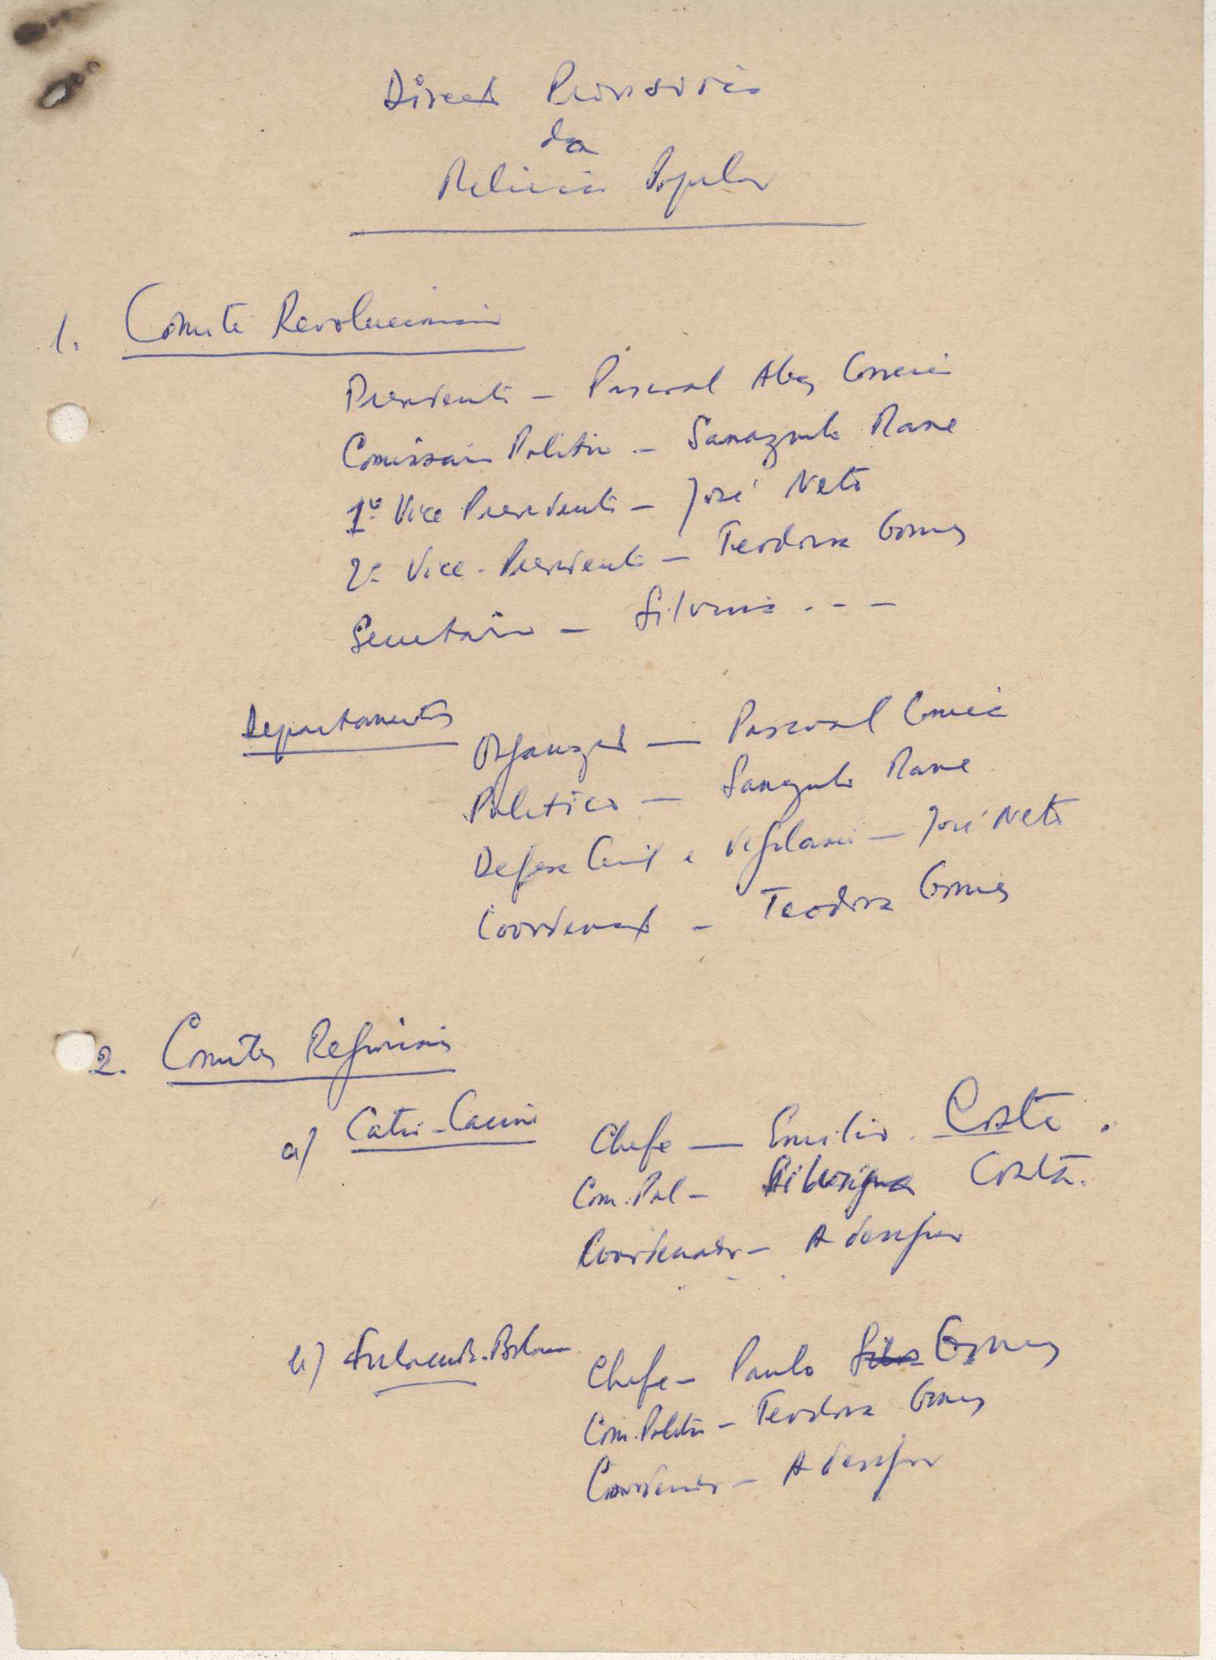 Direcção Provisória
da
Milícia Popular
1. Comité Revolucionário
Presidente — Pascoal Alves Correia
Comissário Político — Mané
1º Vice Presidente — José Neto
2º Vice-Presidente — Teodora Gomes
Secretário — - - -
Departamentos
Organização — Pascoal Correia
Político — Mané
Defesa Civil e Vigilância — José Neto
Coordenação — Teodora Gomes
2. Comités Regionais
a) Catió-Cacine
Chefe — Emílio Costa.
Com. Pol — Costa.
Coordenador — A designar
b)
Chefe — Paulo Gomes
Com. Político — Teodora Gomes
Coordenador — A designar